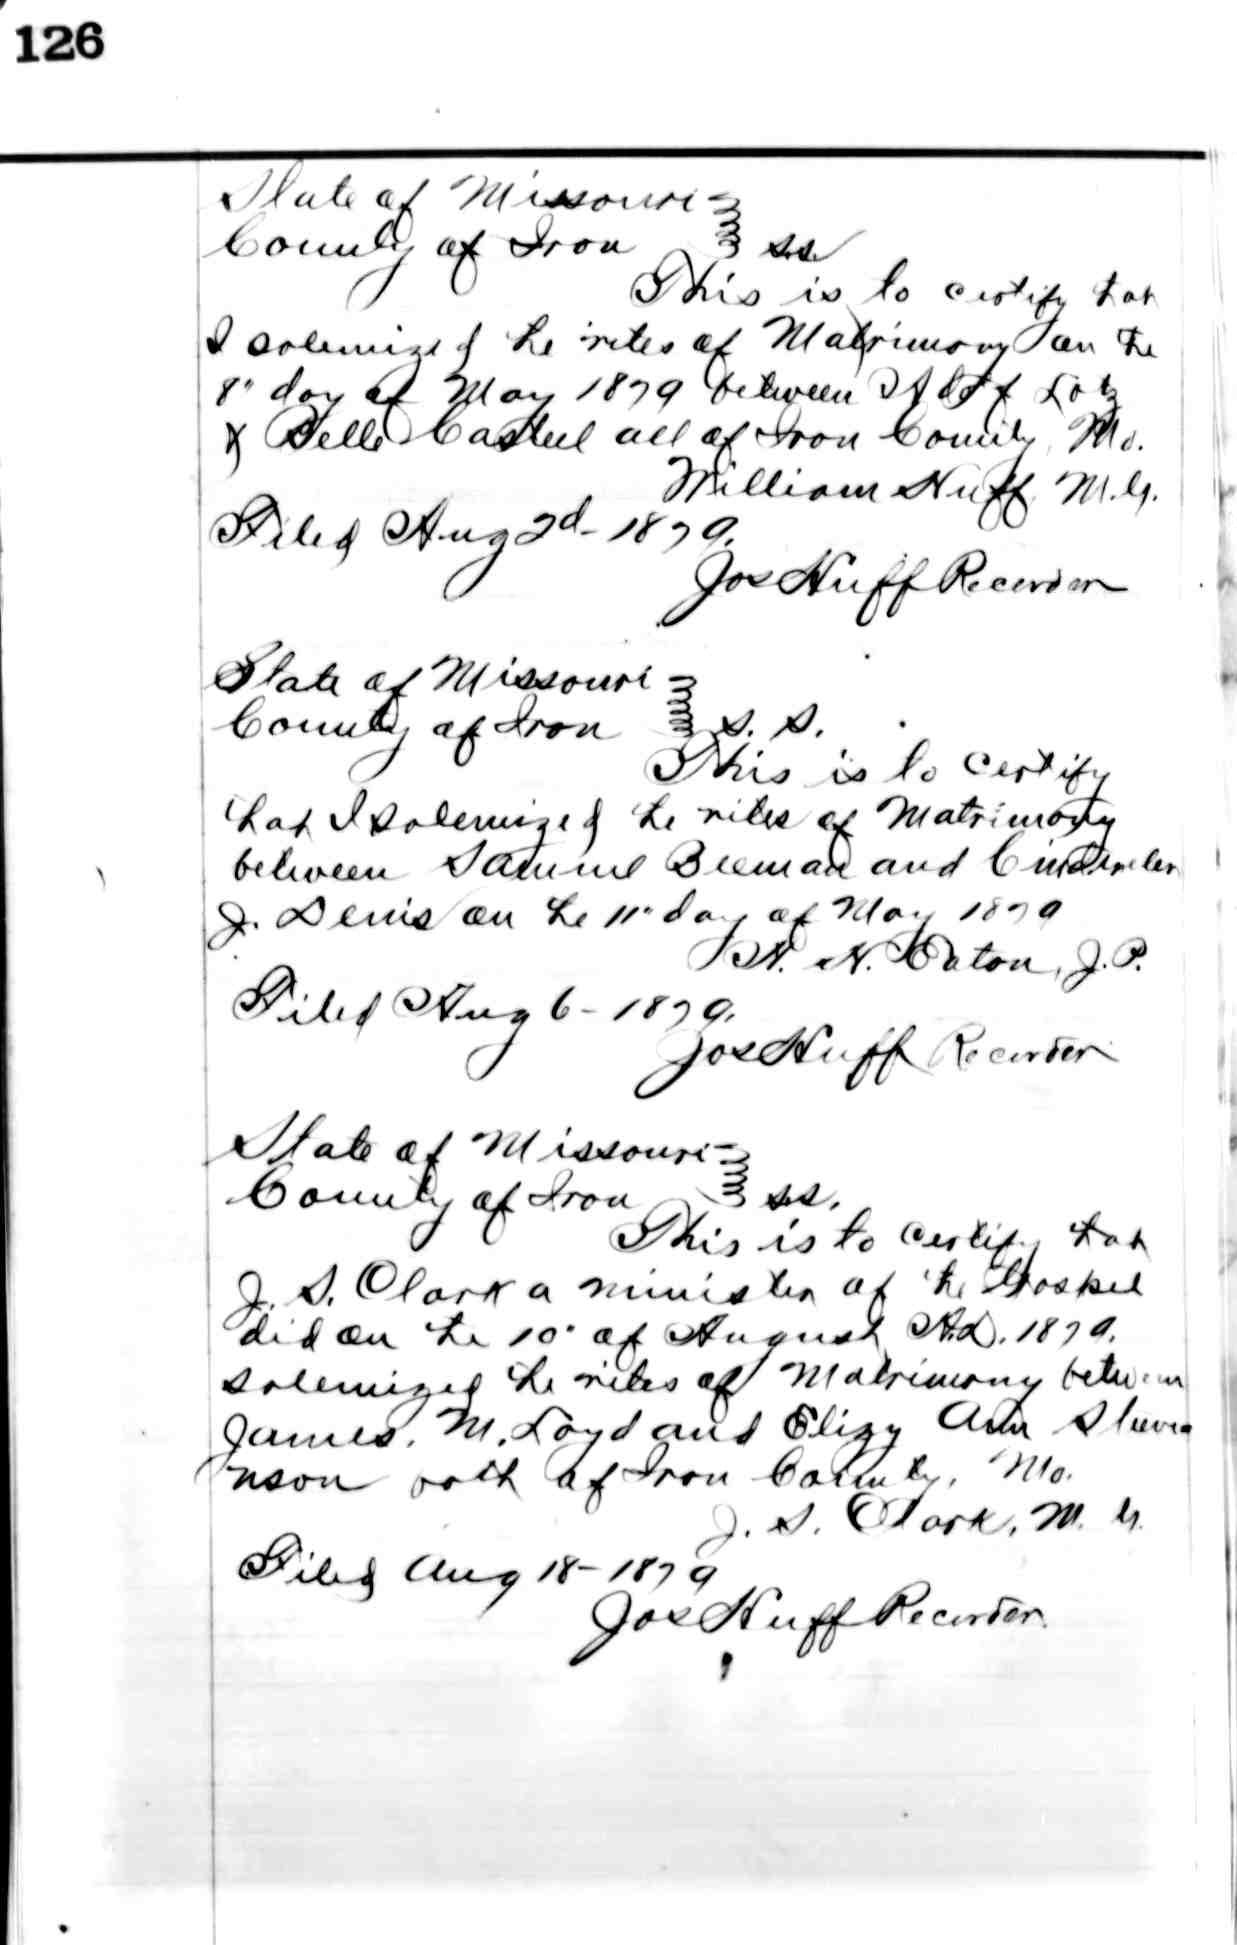 126
State of Missouri
County of Iron } ss
This is to certify that
I solemnized the rites of Matrimony on the
8" day of May 1879 between Lotz
& Belle Casteel all of Iron County, Mo.
William Huff, M.G.
Filed Aug 2d - 1879.
Jos Huff Recorder
State of Missouri
County of Iron } S. S.
This is to certify
that I solemnized the rites of Matrimony
between Samuel Beeman and
J. Denis on the 11" day of May 1879
N. Eaton, J.P.
Filed Aug 6 - 1879.
Jos Huff Recorder
State of Missouri
County of Iron } ss.
This is to certify that
J. S. Clark a minister of the Gospel
did on the 10" of August A.D. 1879.
solemnized the rites of Matrimony between
James. M. Loyd and Elizy Ann Steven
nson both of Iron County, Mo.
J. S. Clark, M. G.
Filed Aug 18 - 1879
Jos Huff Recorder